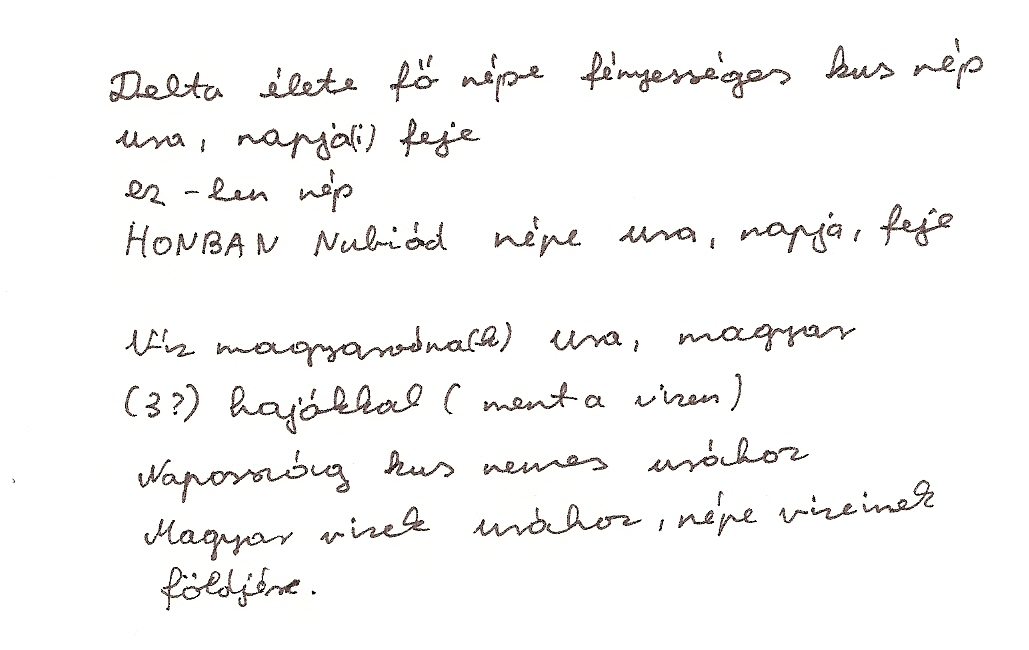 Delta élete fő népe fényességes kus nép
ura, napjá(i) feje
ez -len nép
HONBAN Nubiód népe ura, napjá, feje
Víz magyarodna(k) ura, magyar
(3?) hajókkal (ment a vizen)
Naposszóig kus nemes urához
Magyar vizek urához, népe vizeinek
földjére.